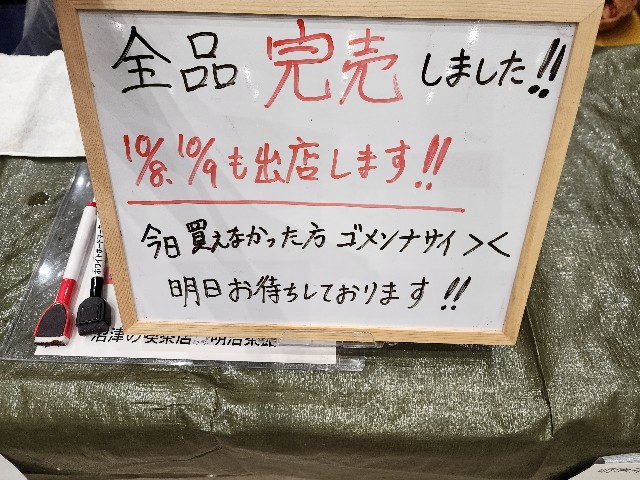 全品 完売 しました!!
10/8、10/9も出店します!!
今日 買えなかった方 ゴメンナサイ ><
明日お待ちしております!!
沼津の喫茶店